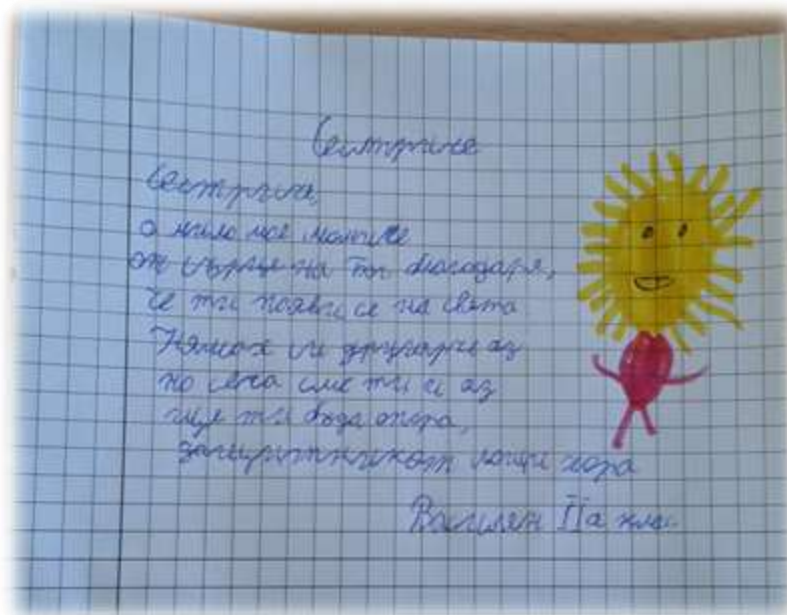 Сестриче
Сестриче,
о мило мое момиче
от сърце на Ти благодаря,
че ти появи се на света
Нямах си другарче аз
но сега сме ти и аз
ще ти бъда опора,
защитник от лоши хора
Василян IIа клас